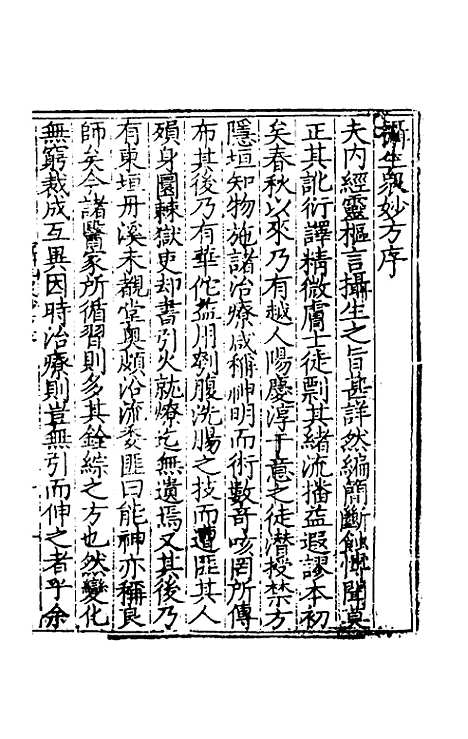 攝生衆妙方序
夫内經靈樞言攝生之旨甚詳然編簡斷蝕惟聞莫
正其訛衍譯精微膚士徒剽其緒流播益遐謬本初
矣春秋以來乃有越人陽慶淳于意之徒潜授禁方
隱垣知物施諸治療咸稱神明而術數奇咳罔所傳
布其後乃有華佗盖用刳腹洗腸之技而遭匪其人
殞身圜棘獄吏却書引火就燎迄無遺焉又其後乃
有東垣丹溪未覩堂奥頗沿流委匪曰能神亦稱良
師矣今諸醫家所循習則多其銓綜之方也然變化
無窮裁成互異因時治療則豈無引而伸之者乎余